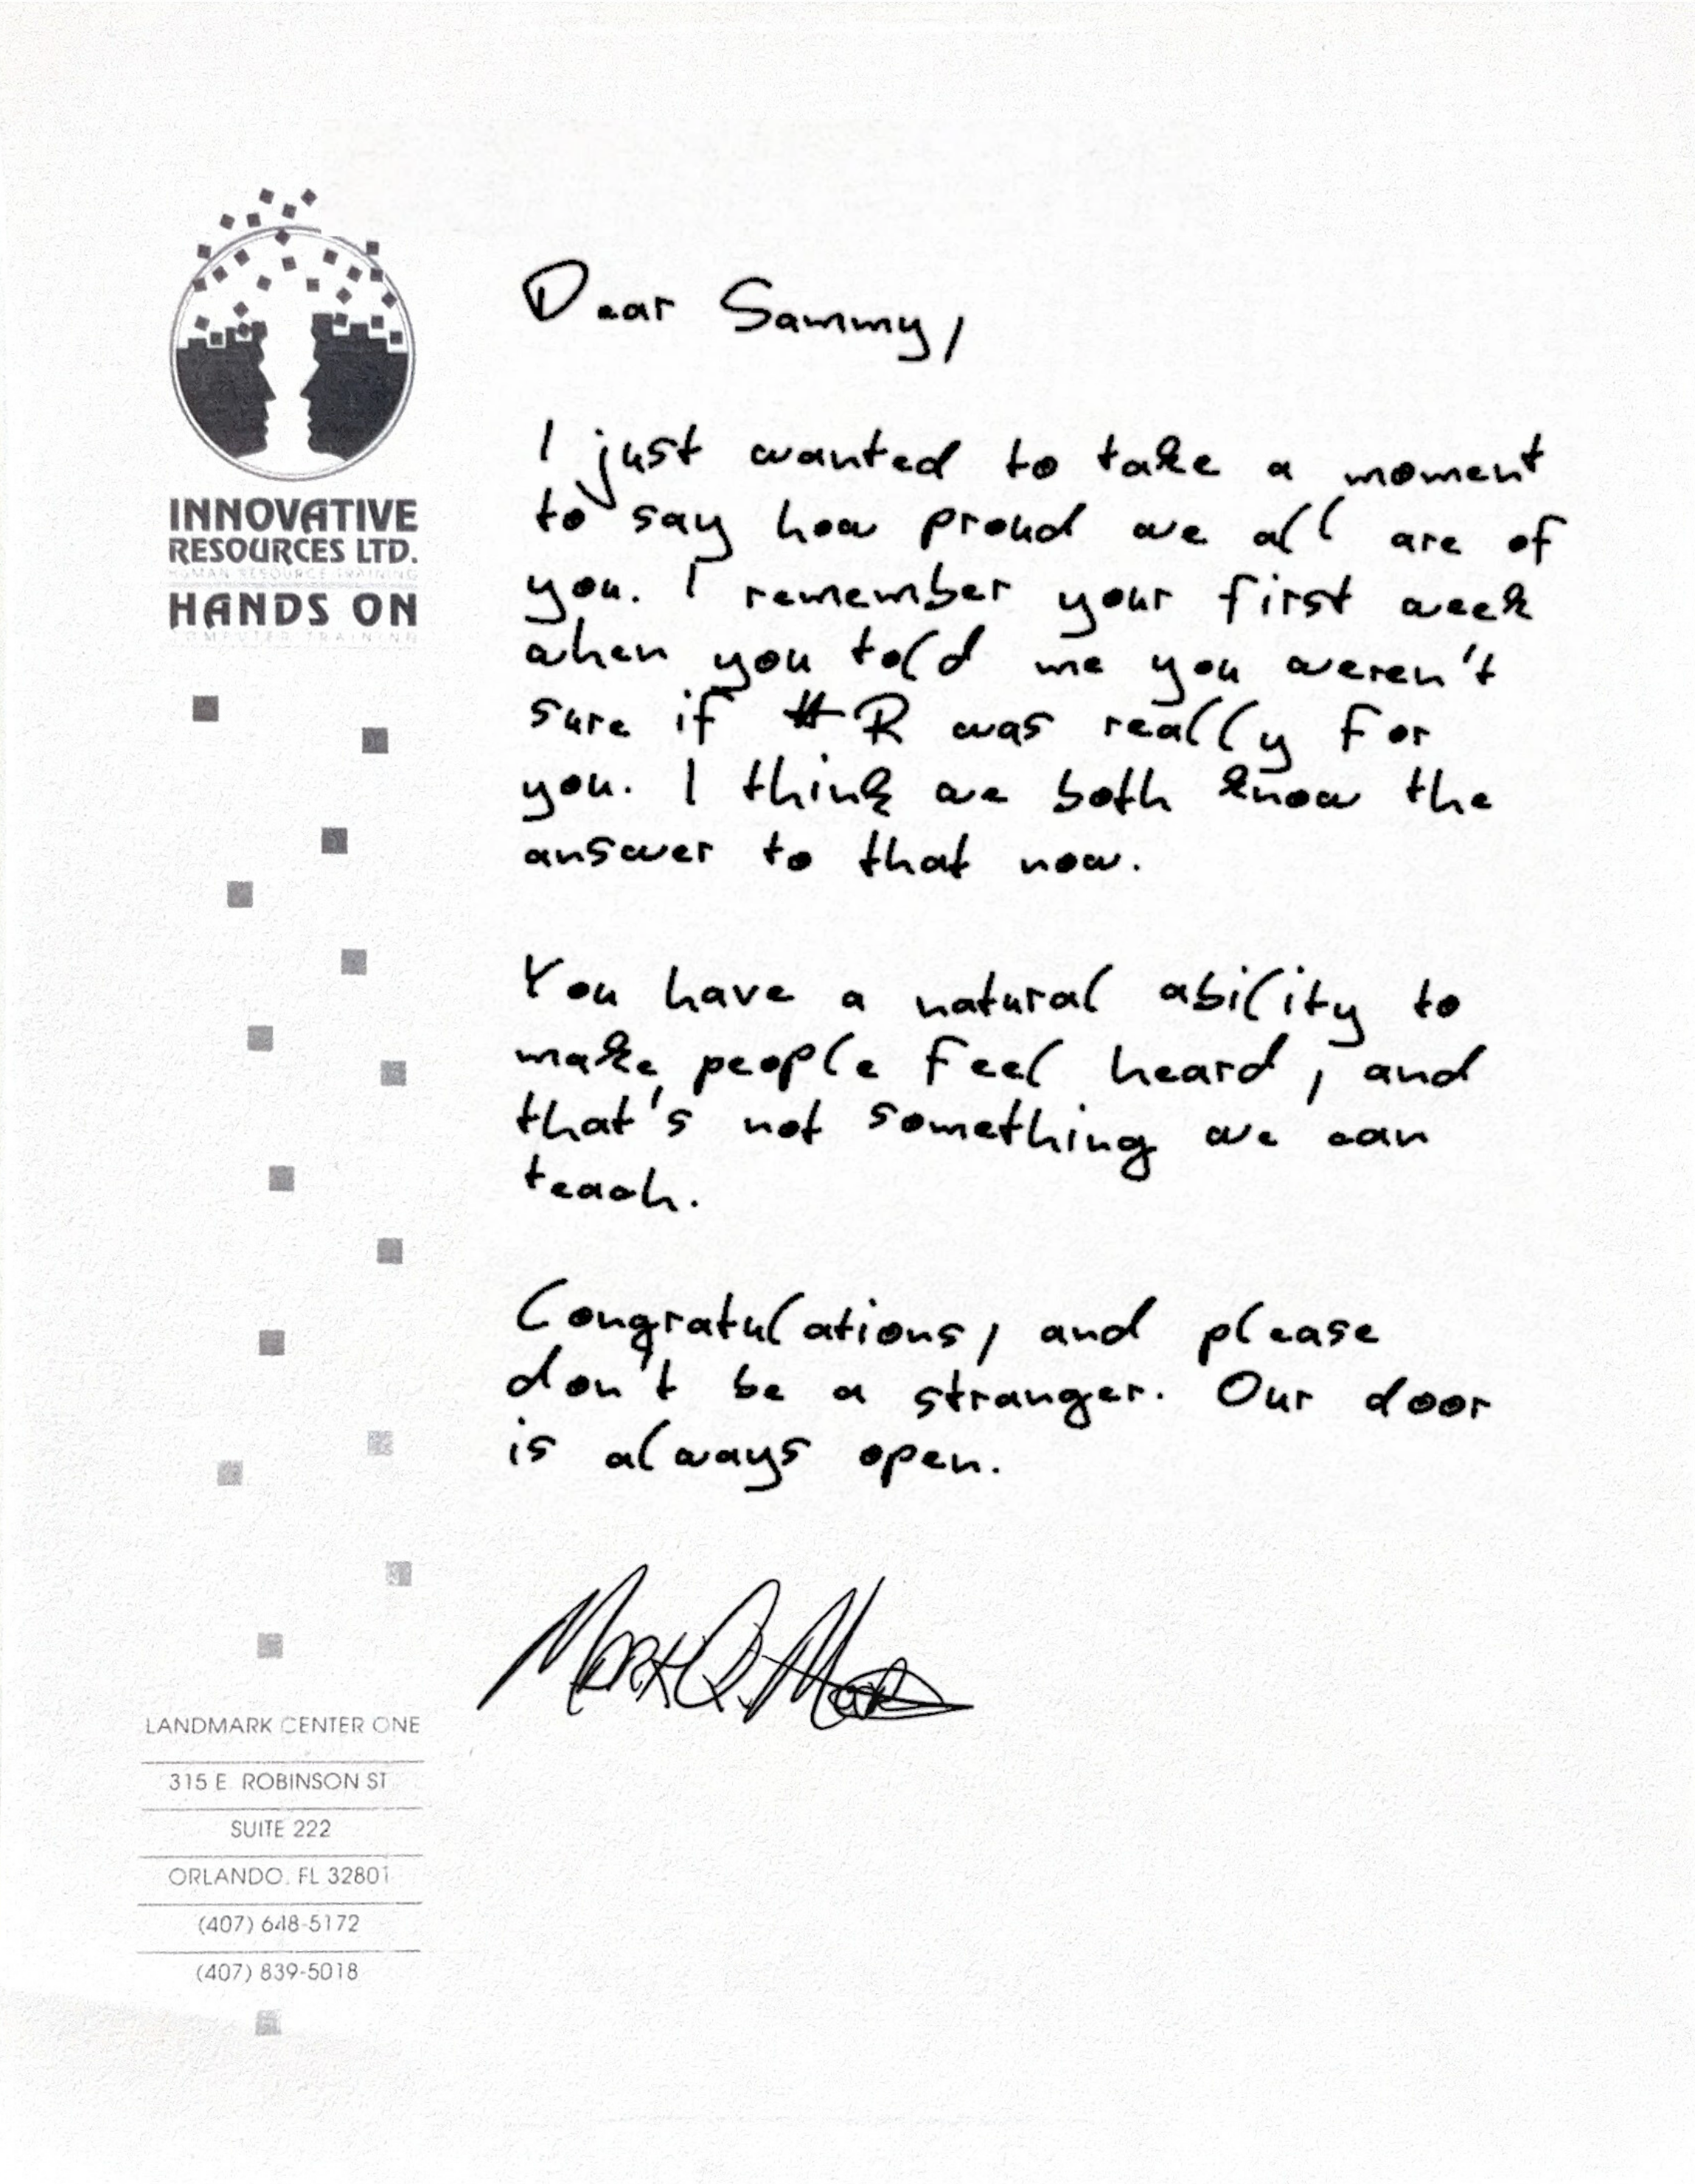 INNOVATIVE
RESOURCES LTD.
HUMAN RESOURCE TRAINING
HANDS ON
COMPUTER TRAINING
Dear Sammy,
I just wanted to take a moment
to say how proud we all are of
you. I remember your first week
when you told me you weren't
sure if HR was really for
you. I think we both know the
answer to that now.
You have a natural ability to
make people feel heard, and
that's not something we can
teach.
Congratulations, and please
don't be a stranger. Our door
is always open.
LANDMARK CENTER ONE
315 E. ROBINSON ST
SUITE 222
ORLANDO, FL 32801
(407) 648-5172
(407) 839-5018